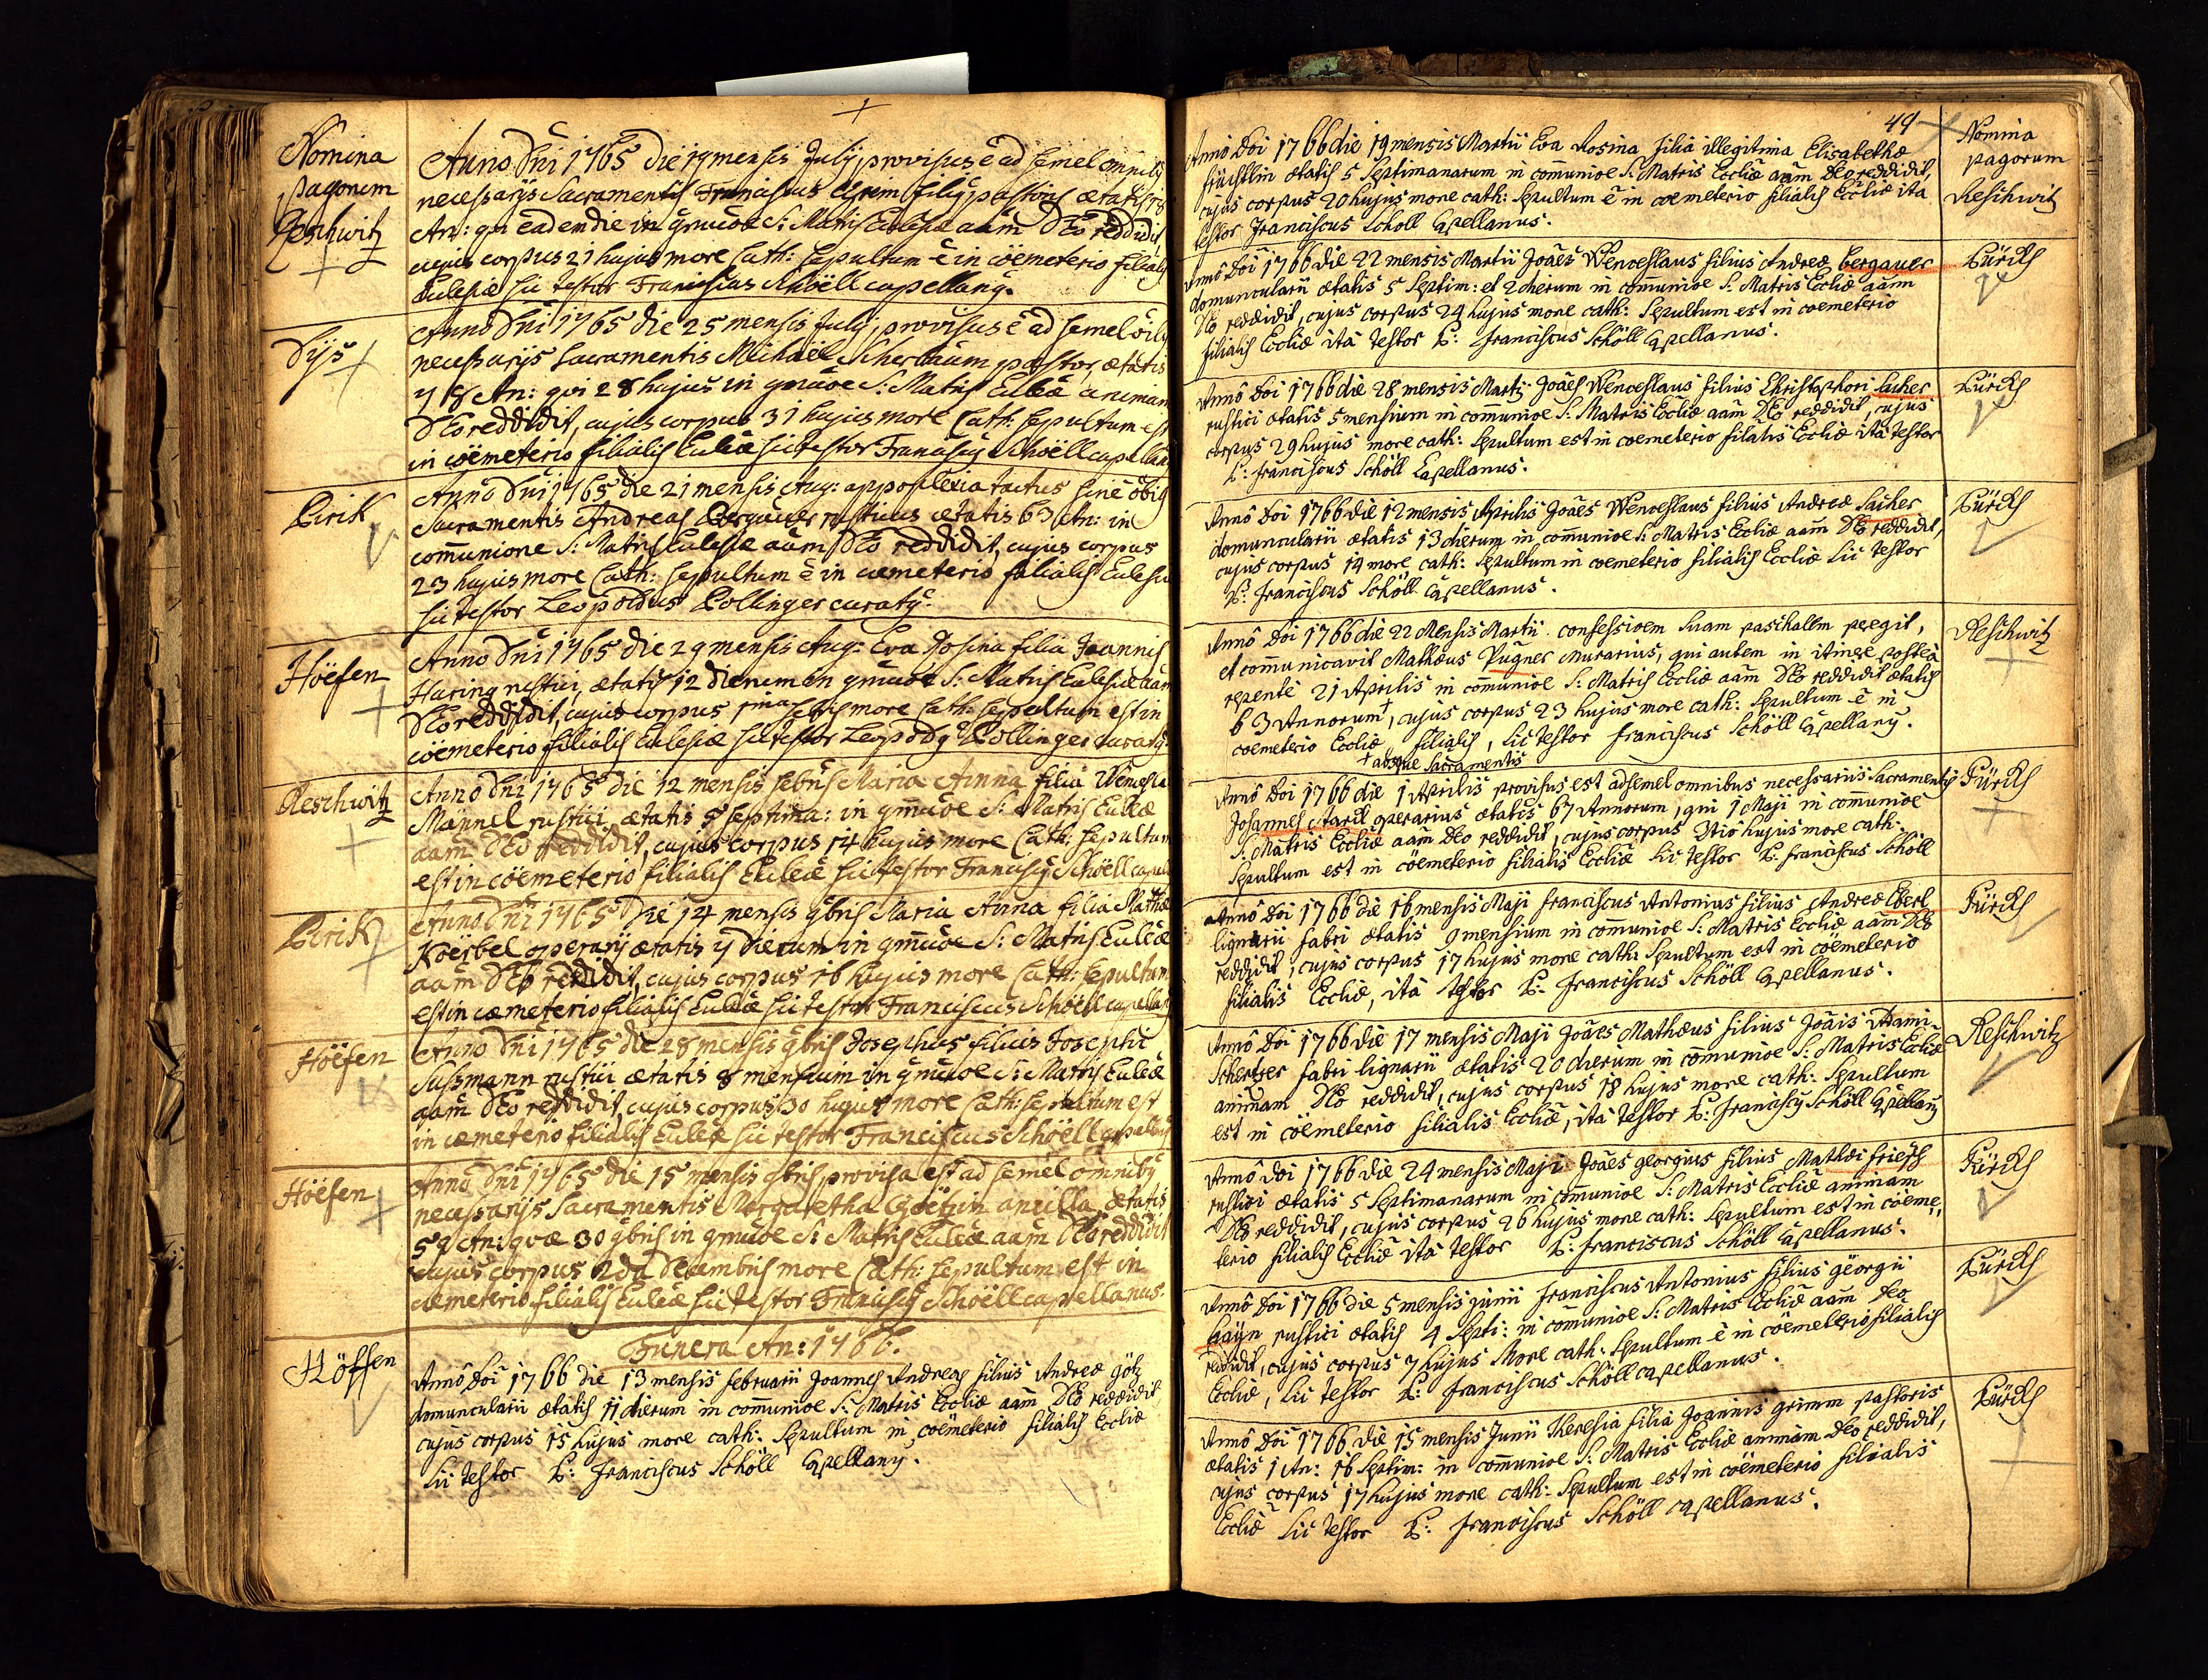 Nomina
pagorum
Reschwitz
Anno Dni 1765 die 19 mensis Julij provisus ê ad semel omnibq
necessarijs Sacramentis Franciscus Grim filiq pastoris ætatis 18
An: qui eadem die in gmuõe S: Matris Eclesiæ aãm DEo reddidit
cujus corpus 21 hujus more Cath: sepultum ê in cöemeterio filialis
Eclesiæ sic testor Franciscus Schöell capellanq.
Dÿs
Anno Dni 1765 die 25 mensis Julij provisus ê ad semel õibq
necessarijs sacramentis Michäel Scherbaum pastor, ætatis
78 An: qui 28 hujus in gmuõe S: Matris Ecleæ animam
DEo reddidit, cujus corpus 31 hujus more Cath: sepultum est
in cöemeterio filialis Ecleæ sic testor Franciscq Schöell capellanq
Pirik
Anno Dni 1765 die 21 mensis Aug: appoplexia tactus sine õibq
Sacramentis Andreas Bergauer rusticus ætatis 63 An: in
com̃unione S: Matris Eclesiæ aãm DEo reddidit, cujus corpus
23 hujus more Cath: sepultum ê in cæmeterio filialis Eclesiæ
sic testor Leopoldus Pollinger curatq.
Höefen
Anno Dni 1765 die 29 mensis Aug: Eva Rosina filia Joannis
Haring rustici ætatis 12 dierum in gmuõe S: Matris Eclesiæ aãm
DEo reddidit, cujus corpus 1ma 7bris more Cath: sepultum est in
cöemeterio filialis Eclesiæ sic testor Leopodq Pollinger curatq.
Reschwitz
Anno Dni 1765 die 12 mensis 7bris Maria Anna filia Wencesla
Mannel rustici ætatis 5 septima: in gmuõe S: Matris Ecleæ
aãm DEo reddidit, cujus corpus 14 hujus more Cath: sepultum
est in cöemeterio filialis Ecleæ sic testor Franciscq Schöell capell
Pirik
Anno Dni 1765 die 14 mensis 9bris Maria Anna filia Mathæ
Köerbel operarij ætatis 7 dierum in gmuõe S: Matris Ecleæ
aãm DEo reddidit, cujus corpus 16 hujus more Cath: sepultum
est in cæmeterio filialis Ecleæ sic testor Franciscus Schöell capellanq
Höefen
Anno Dni 1765 die 28 mensis 9bris Josephus filius Josephi
Susmann rustici ætatis 8 mensium in gmuõe S: Matris Ecleæ
aãm DEo reddidit, cujus corpus 30 hujus more Cath: sepultum est
in cæmeterio filialis Ecleæ sic testor Franciscus Schöell capellanq
Höefen
Anno Dni 1765 die 15 mensis 9bris provisa est ad semel omnibq
necessarijs Sacramentis Margaretha Göetzin ancilla, ætatis
59 An: quæ 30 9bris in gmuõe S: Matris Ecleæ aãm DEo reddidit
cujus corpus 2da Decembris more Cath: sepultum est in
cæmeterio filialis Ecleæ sic testor Franciscq Schöell capellanus.
Funera An: 1766.
Höffen
Annô Doi 1766 die 13 mensis februarii Joannes Andreas filius Andreæ Götz
domuncularii ætatis 11 dierum in com̃unioe S: Matris Eccliæ aãm DEo reddidit,
cujus corpus 15 hujus more cath: sepultum in cöemeterio filialis Eccliæ
sic testor P: Franciscus Schöll Capellanq.
49
Nomina
pagorum
Reschwitz
Annô Doi 1766 die 19 mensis Martii Eva Rosina filia illegitima Elisabethæ
früchtlin ætatis 5 septimanarum in com̃unioe S: Matris Eccliæ aãm DEo reddidit,
cujus corpus 20 hujus more cath: sepultum ê in coemeterio filialis Eccliæ ita
testor Franciscus Scholl Capellanus.
Pürckh
Annô Doi 1766 die 22 mensis Martii Joães Wenceslaus filius Andreæ Bergauer
domuncularii ætatis 5 septim: et 2 dierum in com̃unioe S: Matris Eccliæ aãm
DEo reddidit, cujus corpus 24 hujus more cath: sepultum est in coemeterio
filialis Eccliæ ità testor P: Franciscus Schöll Capellanus.
Pürckh
Annô Doi 1766 die 28 mensis Martii Joães Wenceslaus filius Christophori Sacher
rustici ætatis 5 mensium in com̃unioe S: Matris Eccliæ aãm DEo reddidit, cujus
corpus 29 hujus more cath: sepultum est in coemeterio filialis Eccliæ ità testor
P: Franciscus Schöll Capellanus.
Pürckh
Annô Doi 1766 die 12 mensis Aprilis Joães Wenceslaus filius Andreæ Sacher
domuncularii ætatis 13 dierum in com̃unioe S: Matris Eccliæ aãm DEo reddidit,
cujus corpus 14 more cath: sepultum in coemeterio filialis Eccliæ sic testor
P: Franciscus Schöll Capellanus.
Reschwitz
Annô Doi 1766 die 22 Mensis Martii confessioem suam paschalem peegit,
et com̃unicavit Mathæus Pugner murarius, qui autem in itinere posteà
repentè 21 Aprilis in com̃unioe S: Matris Eccliæ aãm DEo reddidit ætatis
63 Annorum+, cujus corpus 23 hujus more cath: sepultum ê in
coemeterio Eccliæ filialis, sic testor Franciscus Schöll Capellanq.
+ absque Sacramentis
Pürckh
Annô Doi 1766 die 1 Aprilis provisus est ad semel omnibus necessariis Sacramentis
Josannes Starck operarius ætatis 67 Annorum, qui 1 Maji in com̃unioe
S: Matris Eccliæ aãm DEo reddidit, cujus corpus 3tio hujus more cath:
sepultum est in cöemeterio filialis Eccliæ sic testor P: Franciscus Schöll
Pürckh
Annô Doi 1766 die 16 mensis Maji Franciscus Antonius filius Andreæ Eberl
lignarii fabri ætatis 9 mensium in com̃unioe S: Matris Eccliæ aãm DEo
reddidit, cujus corpus 17 hujus more cath: sepultum est in cöemeterio
filialis Eccliæ, ità testor P: Franciscus Schöll Capellanus.
Reschwitz
Annô Doi 1766 die 17 mensis Maji Joães Mathæus filius Joãis Adami
Schertzer fabri lignarii ætatis 20 dierum in com̃unioe S: Matris Eccliæ
animam DEo reddidit, cujus corpus 18 hujus more cath: sepultum
est in cöemeterio filialis Eccliæ, ità testor P: Franciscq Schöll Capellanq
Pürckh
Annô Doi 1766 die 24 mensis Maji Joães georgius filius Mathæi friesh
rustici ætatis 5 septimanarum in com̃unioe S: Matris Eccliæ animam
DEo reddidit, cujus corpus 26 hujus more cath: sepultum est in cöeme,,
terio filialis Eccliæ ità testor P: Franciscus Schöll Capellanus.
Pürckh
Annô Doi 1766 die 5 mensis Junii Franciscus Antonius filius georgii
haÿn rustici ætatis 4 septi: in com̃unioe S: Matris Eccliæ aãm DEo
reddidit, cujus corpus 7 hujus more cath: sepultum ê in cöemeterio filialis
Eccliæ, sic testor P: Franciscus Schöll capellanus.
Pürckh
Annô Doi 1766 die 15 mensis Junii Theresia filia Joannis grimm pastoris
ætatis 1 An: 16 septim: in com̃unioe S: Matris Eccliæ animam DEo reddidit,
cujus corpus 17 hujus more cath: sepultum est in cöemeterio filialis
Eccliæ sic testor P: Franciscus Schöll capellanus.